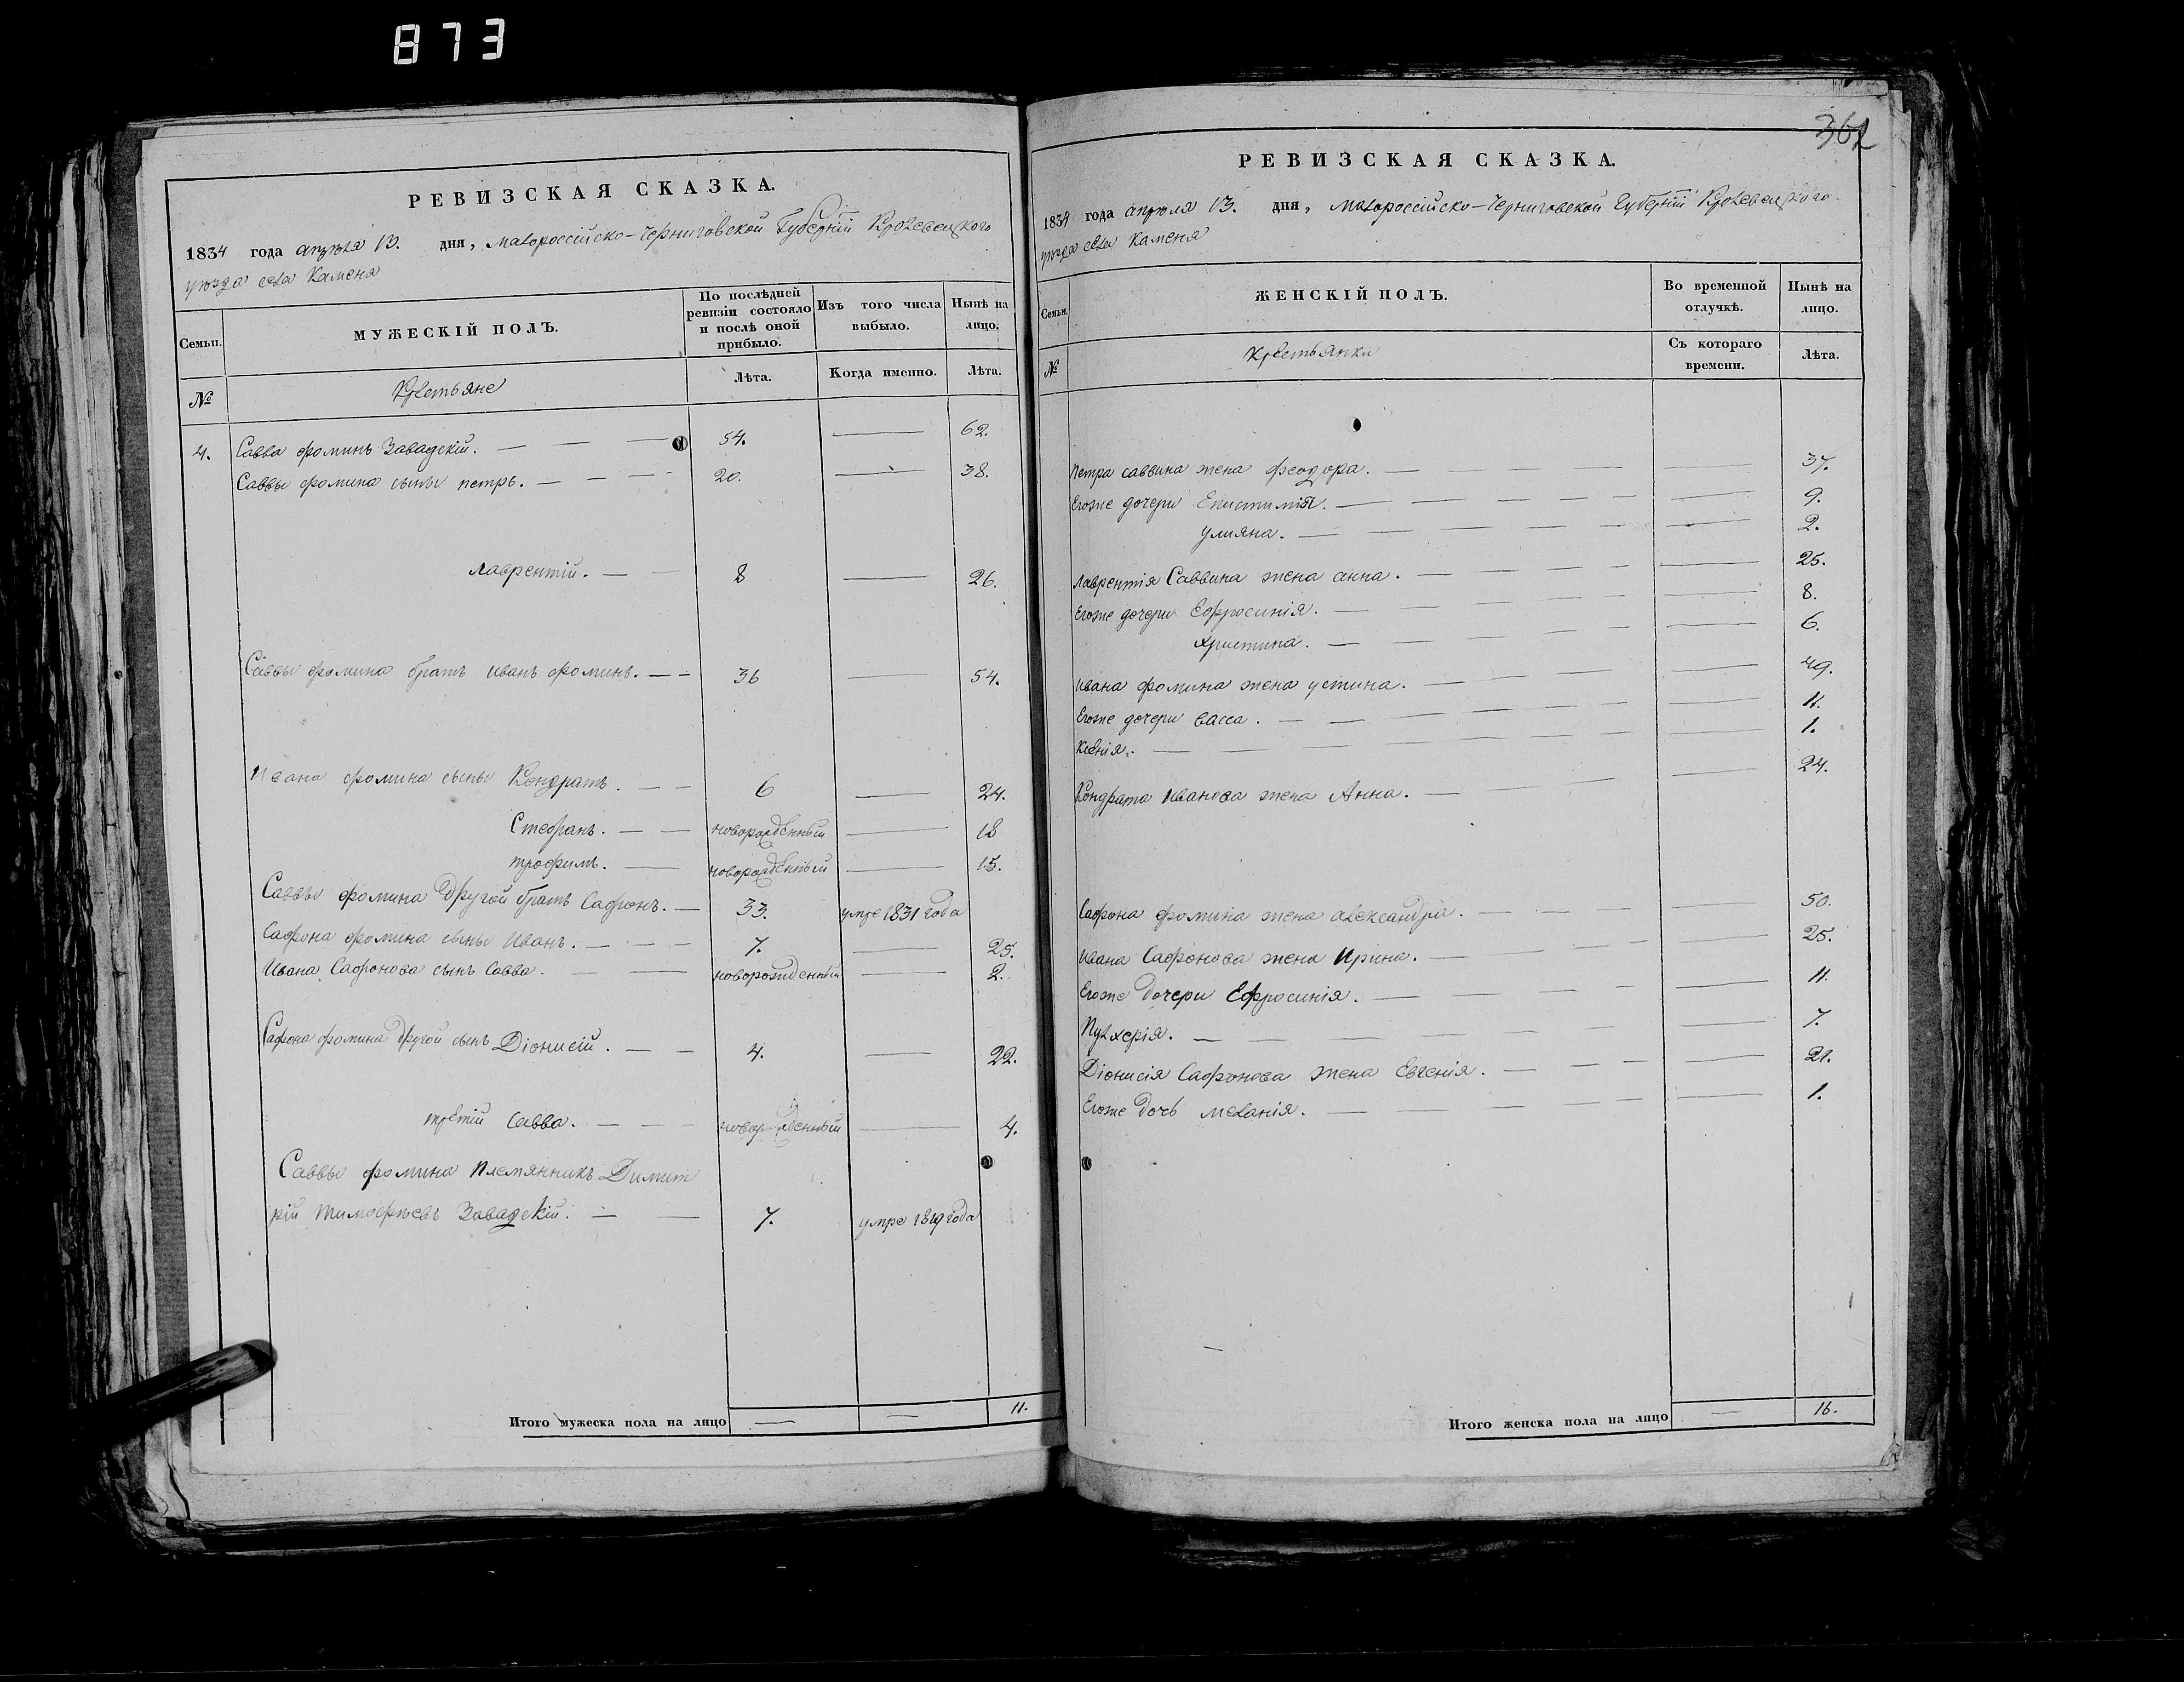 873
361
РЕВИЗСКАЯ СКАЗКА.
1834 года апрѣля 13. дня, малороссійско-черниговской Губерніи Кролевецкого
уѣзда села Каменя
Семьи. МУЖЕСКІЙ ПОЛЪ. По послѣдней ревизіи состояло и послѣ оной прибыло. Изъ того числа выбыло. Нынѣ на лицо.
№ Крестьяне Лѣта. Когда именно. Лѣта.
4. Савва фоминъ Завадскій. — 54. — 62.
Саввы фомина сыны петръ. — 20. — 38.
лаврентій. — 8 — 26.
Саввы фомина братъ иванъ фоминъ. — 36 — 54.
Ивана фомина сыны Кондратъ. — 6 — 24.
Стефанъ. — новорожденный — 18
трофимъ. — новорожденный — 15.
Саввы фомина другой братъ Сафонъ. — 33. умре 1831 года
Сафона фомина сыны Иванъ. — 7. — 25.
Ивана Сафонова сынъ Савва. — новорожденный — 2.
Сафона фомина другой сынъ Діонисій. — 4. — 22.
третій Савва. — новорожденный — 4.
Саввы фомина племянникъ Димит
рій тимофѣевъ Завадскій. — 7. умре 1819 года
Итого мужеска пола на лицо — — 11.
РЕВИЗСКАЯ СКАЗКА.
1834 года апрѣля 13. дня, малороссійско-черниговской Губерніи Кролевецкого
уѣзда села Каменя
Семьи. ЖЕНСКІЙ ПОЛЪ. Во временной отлучкѣ. Нынѣ на лицо.
№ Крестьянки Съ котораго времени. Лѣта.
петра саввина жена феодора. — 37.
Егоже дочери Епистимія. — 9.
улияна. — 2.
лаврентія Саввина жена анна. — 25.
Егоже дочери Ефросинія. — 8.
христина. — 6.
ивана фомина жена устина. — 49.
Егоже дочери васса. — 11.
Ксенія. — 1.
Кондрата Иванова жена Анна. — 24.
Сафона фомина жена александра. — 50.
ивана Сафонова жена Ирина. — 25.
Егоже дочери Ефросинія. — 11.
Пулхерія. — 7.
Діонисія Сафонова жена Евгенія. — 21.
Егоже дочь меланія. — 1.
Итого женска пола на лицо — 16.